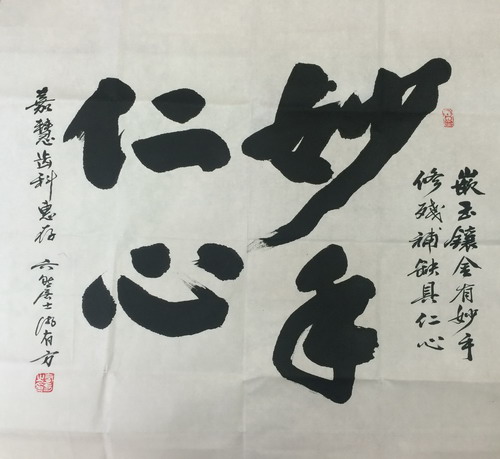 嵌玉鑲金有妙手
修殘補缺具仁心
妙手
仁心
嘉慧齿科惠存 六居士游有方